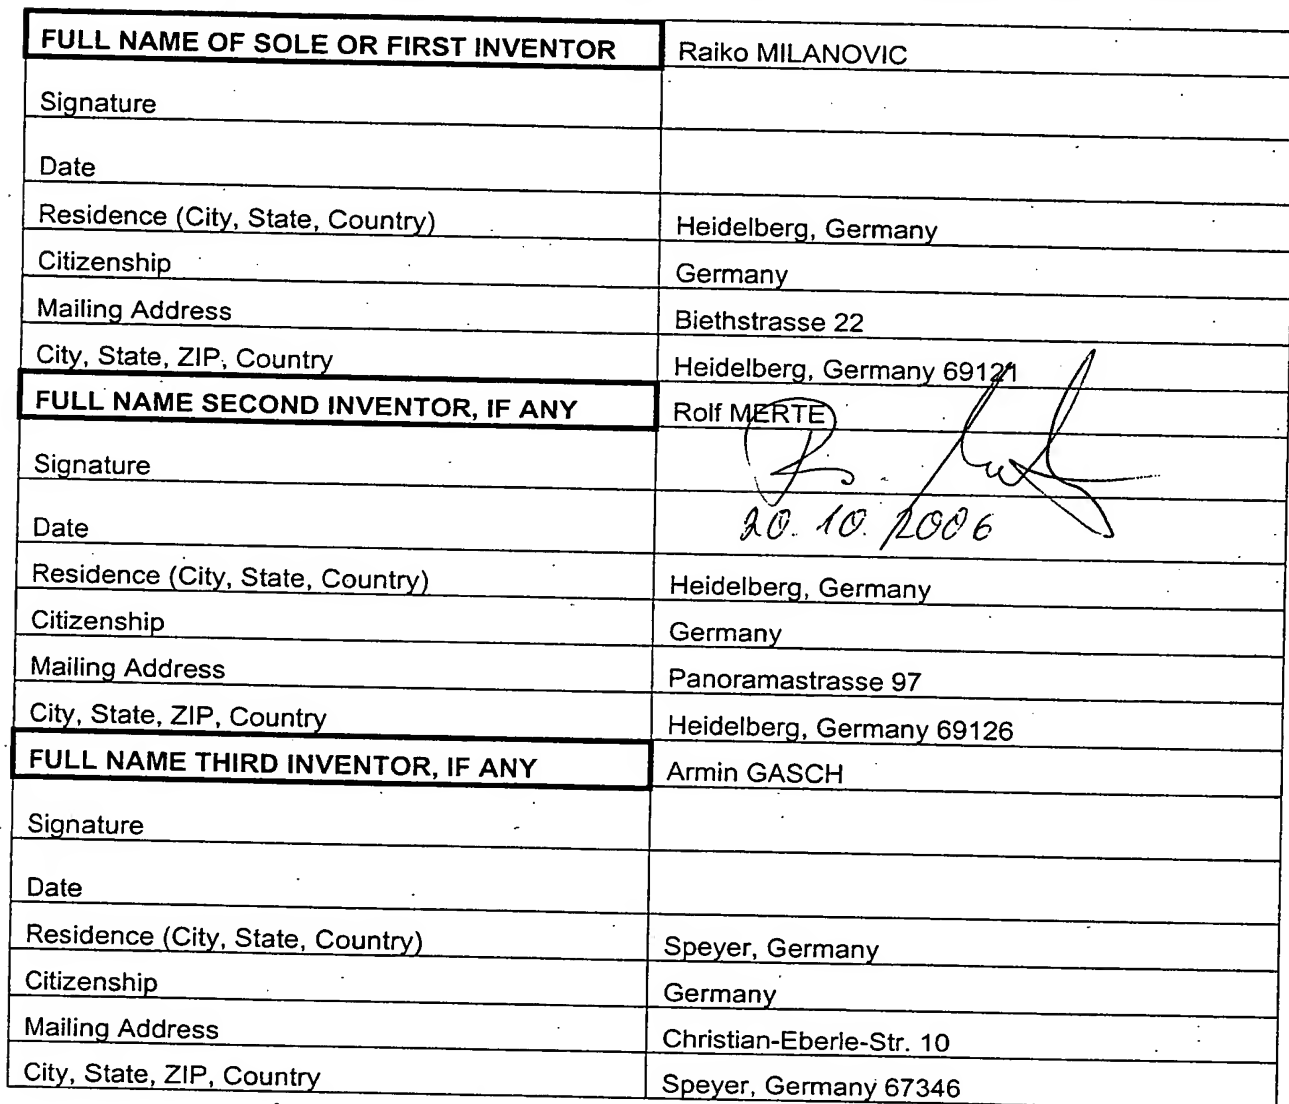 FULL NAME OF SOLE OR FIRST INVENTOR Raiko MILANOVIC
Signature
Date
Residence (City, State, Country) Heidelberg, Germany
Citizenship Germany
Mailing Address Biethstrasse 22
City, State, ZIP, Country Heidelberg, Germany 69121
FULL NAME SECOND INVENTOR, IF ANY Rolf MERTE
Signature
Date 20.10.2006
Residence (City, State, Country) Heidelberg, Germany
Citizenship Germany
Mailing Address Panoramastrasse 97
City, State, ZIP, Country Heidelberg, Germany 69126
FULL NAME THIRD INVENTOR, IF ANY Armin GASCH
Signature
Date
Residence (City, State, Country) Speyer, Germany
Citizenship Germany
Mailing Address Christian-Eberle-Str. 10
City, State, ZIP, Country Speyer, Germany 67346